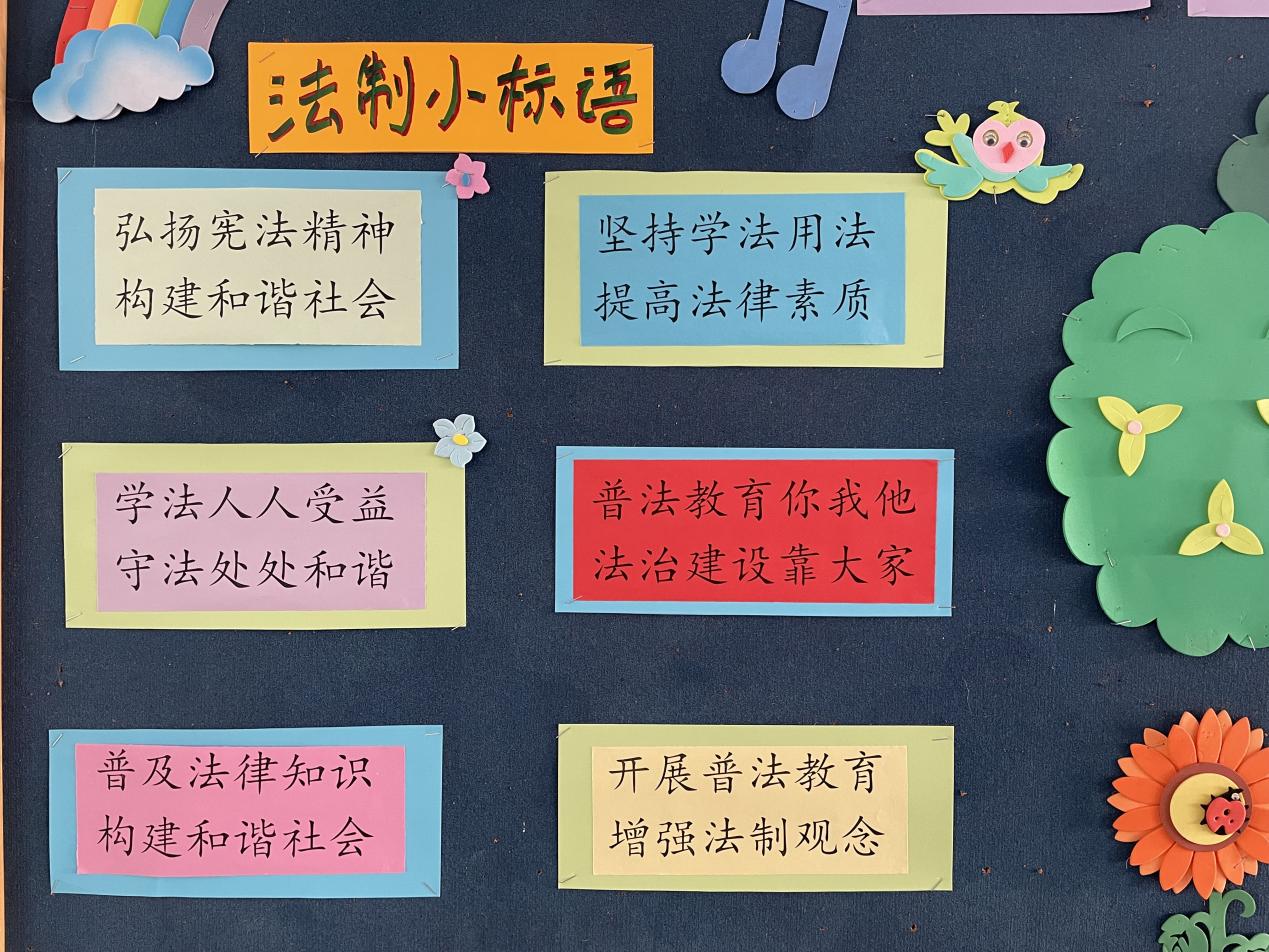 法制小标语
弘扬宪法精神
构建和谐社会
坚持学法用法
提高法律素质
学法人人受益
守法处处和谐
普法教育你我他
法治建设靠大家
普及法律知识
构建和谐社会
开展普法教育
增强法制观念